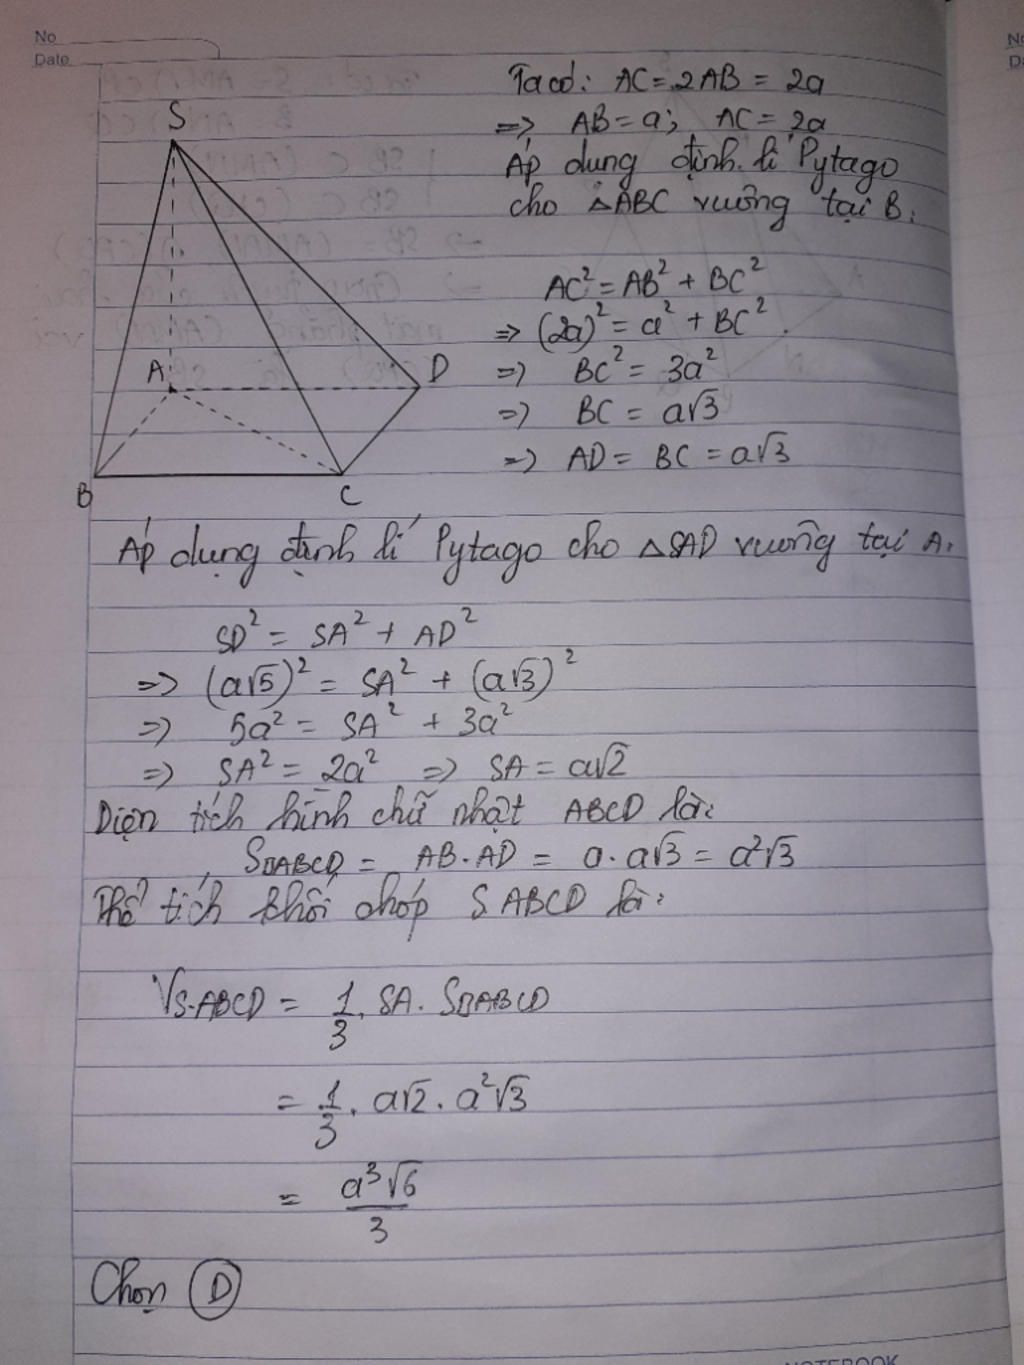 No
Date
No
S
A
D
B
C
Ta có: AC = 2AB = 2a
=> AB = a; AC = 2a
Áp dụng định lí Pytago
cho △ABC vuông tại B:
AC² = AB² + BC²
=> (2a)² = a² + BC²
=> BC² = 3a²
=> BC = a√3
=> AD = BC = a√3
Áp dụng định lí Pytago cho △SAD vuông tại A:
SD² = SA² + AD²
=> (a√5)² = SA² + (a√3)²
=> 5a² = SA² + 3a²
=> SA² = 2a² => SA = a√2
Diện tích hình chữ nhật ABCD là:
S□ABCD = AB.AD = a.a√3 = a²√3
Thể tích khối chóp S.ABCD là:
V S.ABCD = 1/3 . SA. S□ABCD
= 1/3 . a√2 . a²√3
= a³√6/3
Chọn D
NOTEBOOK